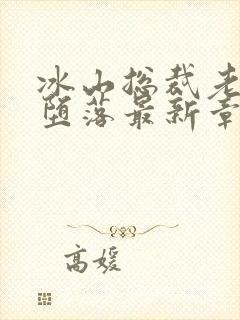 冰山总裁老
堕落最新章
高媛